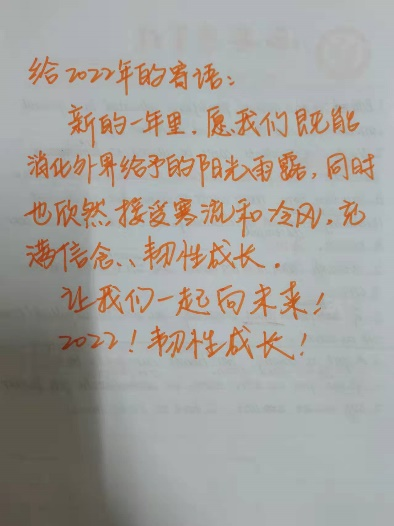 给2022年的寄语：
新的一年里，愿我们既能
消化外界给予的阳光雨露，同时
也欣然接受寒流和冷风，充
满信念、、韧性成长。
让我们一起向未来！
2022！韧性成长！